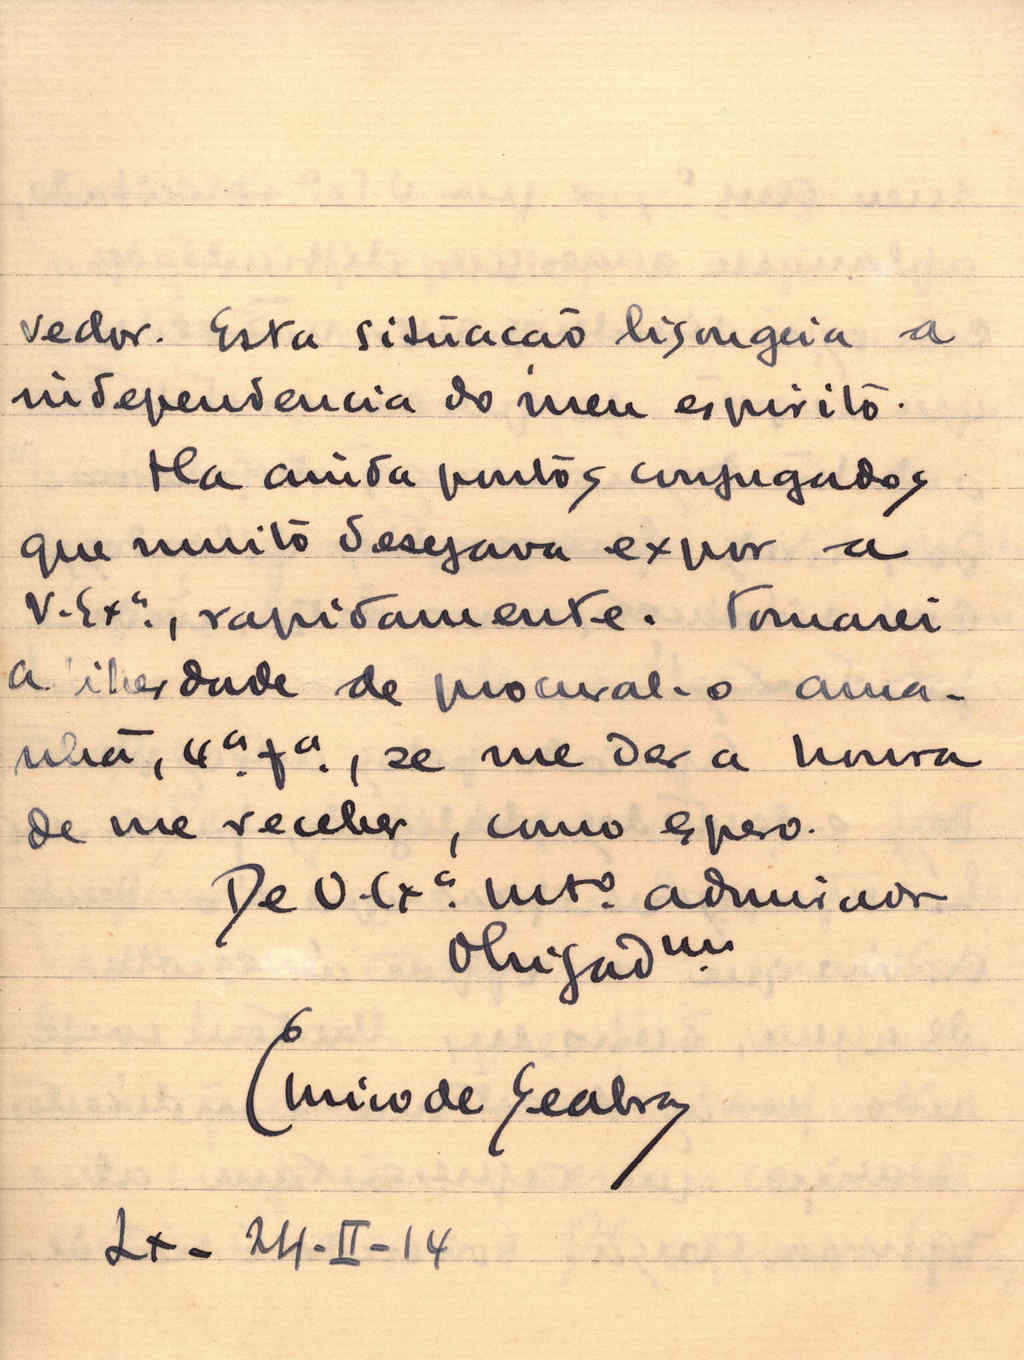 vedor. Esta situação lisongeia a
independencia do meu espirito.
Ha ainda pontos conjugados
que muito desejava expor a
V. Exª., rapidamente. Tomarei
a liberdade de procural-o ama-
nhã, 4ª. fª., se me der a honra
de me receber, como espero.
De V. Exª. mtº. admirador
Obrigad^mo.
de Seabra
Lx - 24-II-14